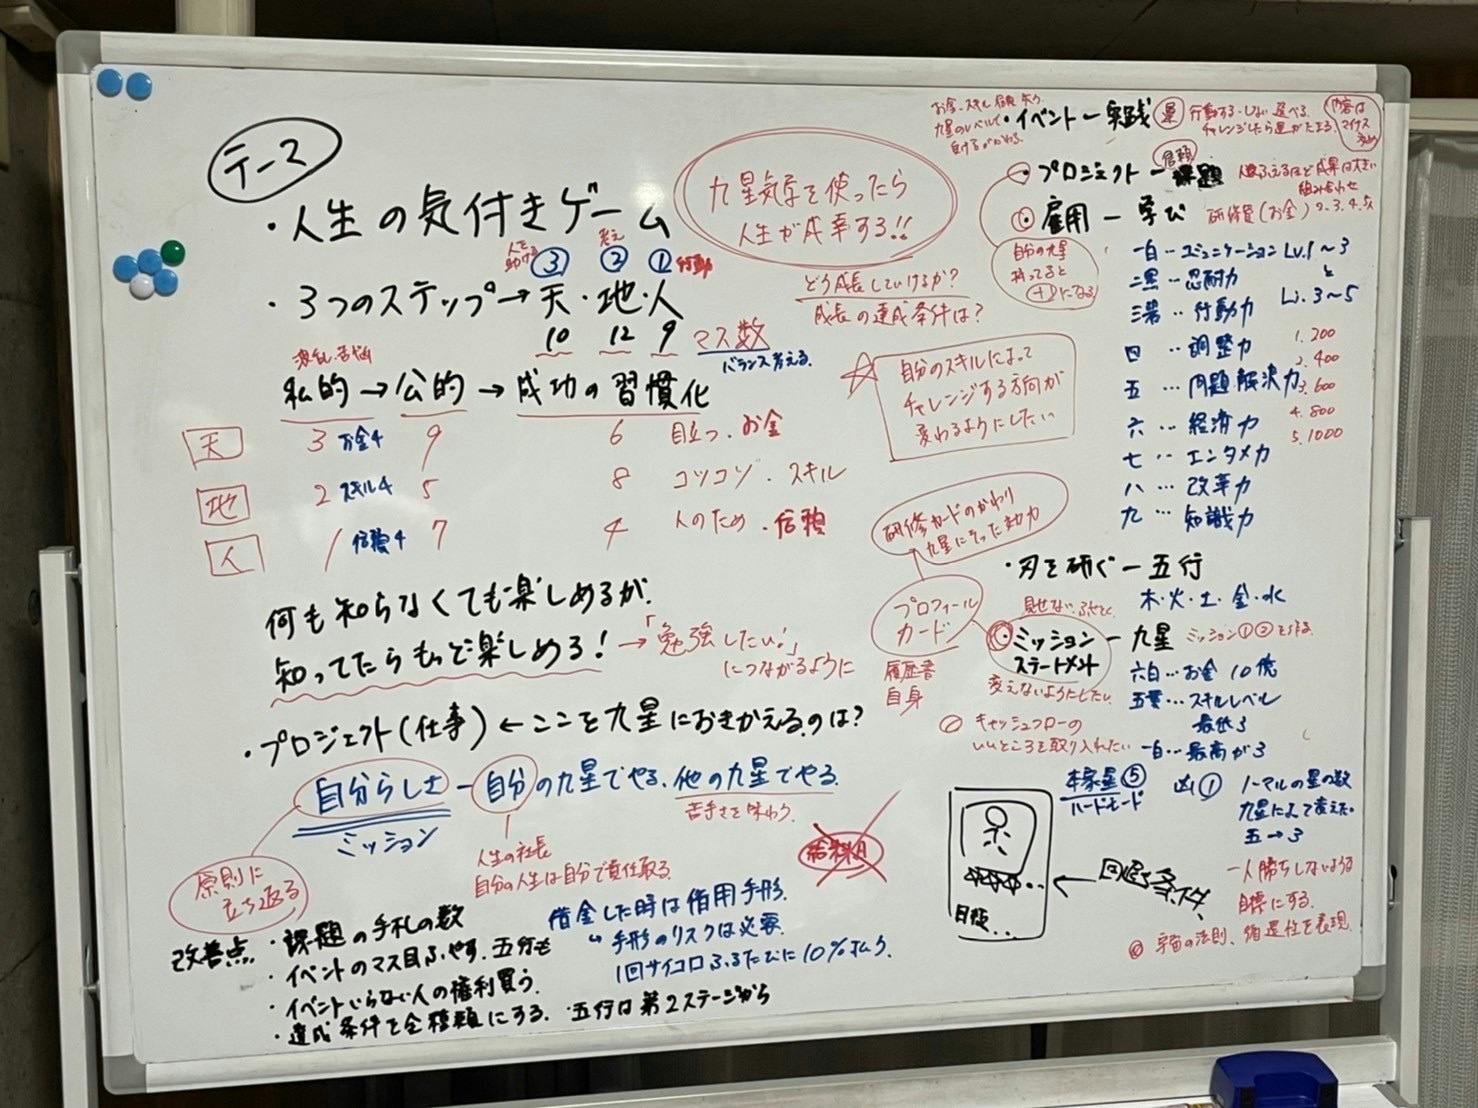 テーマ
・人生の気付きゲーム
人を助ける ③ 考え ② ① 行動
・3つのステップ→天・地・人
10 12 9 マス数
バランス考える。
波乱・苦悩
私的→公的→成功の習慣化
天 3 お金4 9 6 目立つ・お金
地 2 スキル4 5 8 コツコツ・スキル
人 1 信頼4 7 4 人のため・信頼
何も知らなくても楽しめるが、
知ってたらもっと楽しめる!→「勉強したい!」
につながるように
・プロジェクト(仕事)←ここを九星におきかえるのは?
自分らしさ―自分の九星でやる。他の九星でやる。
苦手さを味わう。
ミッション
人生の社長
自分の人生は自分で責任取る。
原則に
立ち返る
給料月
借金した時は借用手形。
手形のリスクは必要。
1回サイコロふるたびに10%払う。
改善点 ・課題の手札の数
・イベントのマス目ふやす。五行も
・イベントいらない人の権利買う。
・達成条件を全種類にする。・五行は第2ステージから
九星気学を使ったら
人生が成幸する!!
どう成長していけるか?
成長の達成条件は?
☆ 自分のスキルによって
チャレンジする方向が
変わるようにしたい
お金、スキル、信頼 失う
九星のレベルで
・イベント―実践 運 行動する・しない 選べる。
チャレンジしたら運がたまる。
内容は
マイナス
多め
・プロジェクト―課題 信頼
人数ふえるほど成果は大きい
組み合わせ
雇用―学び 研修費(お金)
自分の九星
持ってると
(+)になる
一白…コミュニケーション Lv.1~3
二黒…忍耐力 と
三碧…行動力 Lv.3~5
四…調整力 1.200
五…問題解決力 2.400
六…経済力 3.600
七…エンタメ力 4.800
八…改革力 5.1000
九…知識力
研修カードのかわり
九星にそった効力
プロフィール
カード
履歴書
自身
・刃を研ぐ―五行
木・火・土・金・水
ミッション
ステートメント
―九星 ミッション①②を作る。
変えないようにしたい
六白…お金 10億
五黄…スキルレベル
最低3
一白…最高が3
キャッシュフローの
いいところを取り入れたい
本家星⑤ 凶①
ハードモード
ノーマルの星の数
九星によって変えたい
五→3
目標...
←回る条件
一人勝ちしないような
目標にする。
◎宇宙の法則、循環性を表現